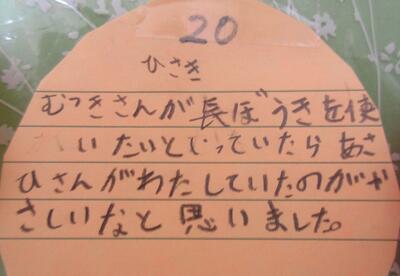 20
ひさき
むつきさんが長ぼうきを使
いたいといっていたらあさ
ひさんがわたしていたのがや
さしいなと思いました。